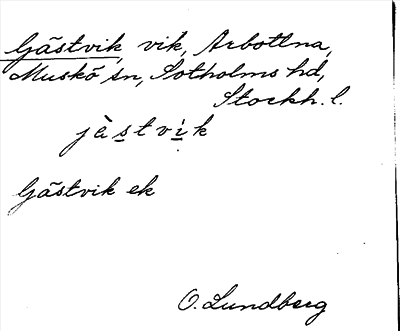 Gästvik, vik, Arbottna,
Muskö sn, Sotholms hd,
Stockh. l.
jästvik
Gästvik ek
O. Lundberg